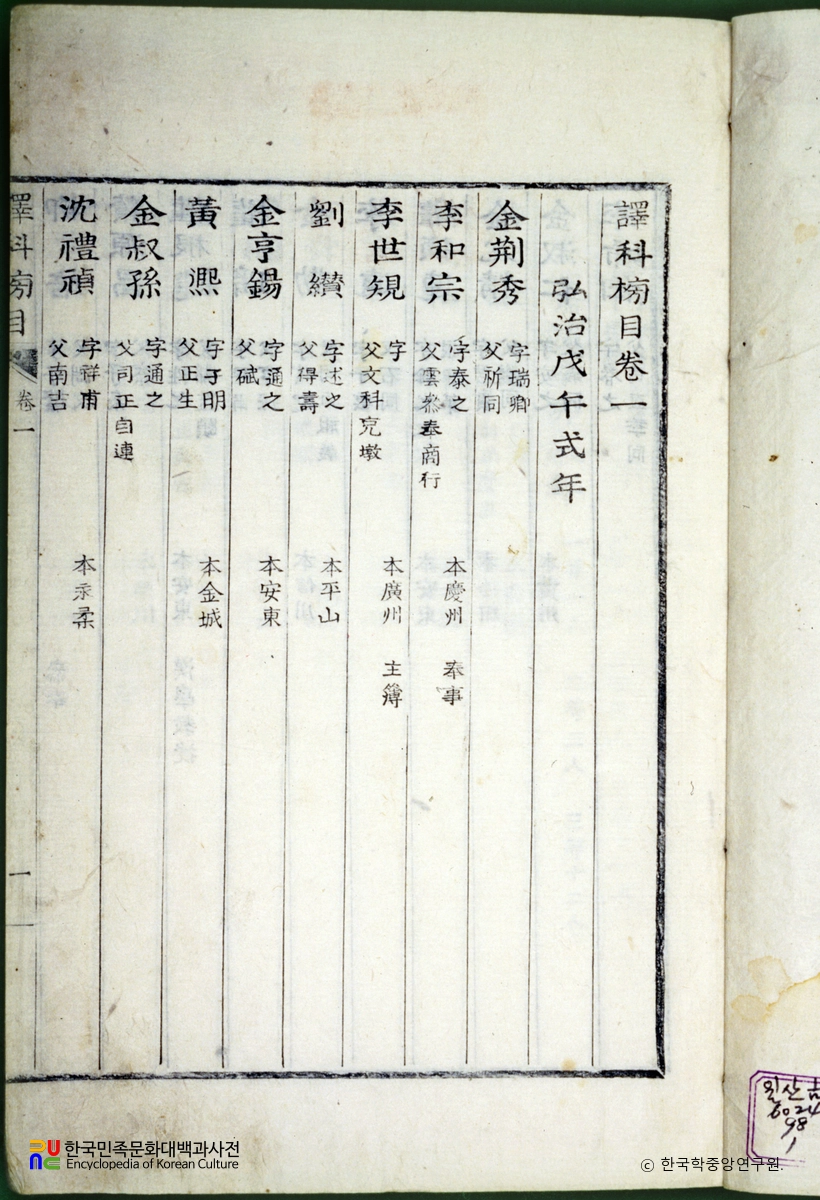 譯科榜目卷一
弘治戊午式年
金荆秀 字瑞卿
父祈同
李和宗 字泰之 本慶州 奉事
父雲叅奉商行
李世䂓 字 本廣州 主簿
父文科克墩
劉纘 字述之 本平山
父得壽
金亨錫 字通之 本安東
父碔
黃㷩 字子明 本金城
父正生
金叔孫 字通之
父司正自連
沈禮禎 字祥甫
父南吉
譯科榜目 卷一
一
한국민족문화대백과사전
Encyclopedia of Korean Culture
© 한국학중앙연구원.
일산古
6024
98
1